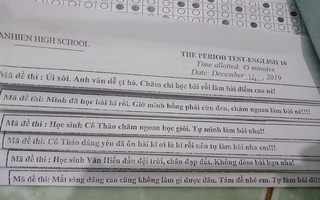 ANHIEN HIGH SCHOOL
THE PERIOD TEST-ENGLISH 10
Time allotted: 45 minutes
Date: December 14, 2019
Mã đề thi : Úi xời. Anh văn dễ ẹt hà. Chăm chỉ học bài rồi làm bài điểm cao nè!
Mã đề thi: Mình đã học bài kĩ rồi. Giờ mình phải cứu đen, chăm ngoan làm bài nè!!!!
Mã đề thi : Học sinh Cô Thảo chăm ngoan học giỏi. Tự mình làm bài nha!!
Mã đề thi: Cô Thảo đáng yêu đã ôn bài kĩ ơi là kĩ rồi nên tự làm bài nha em!!!
Mã đề thi : Học sinh Văn Hiến đầu đội trời, chân đạp đất. Không dòm bài bạn nha!
Mã đề thi: Mắt sáng dáng cao cũng không làm gì được đâu. Tám đề nhé em. Tự làm bài đi!!